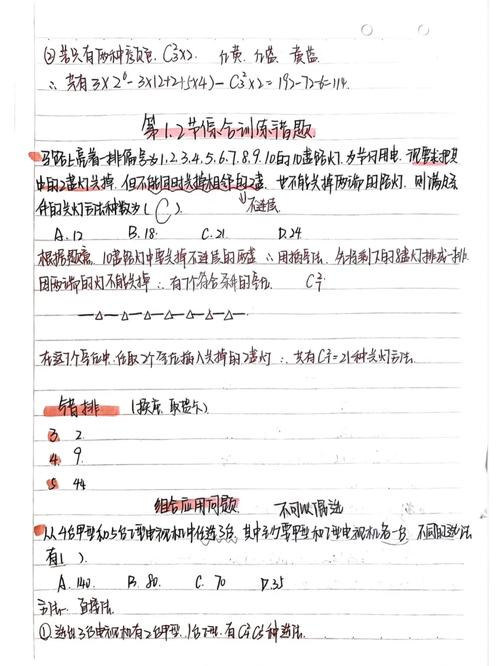 ②若只有两种颜色. C₃²×2. 红黄. 红蓝. 黄蓝
∴ 共有3×2⁶-3×(2+2+5×4)-C₃²×2=192-72-6=114.
第1.2节综合训练错题
马路上亮着一排编号为1.2.3.4.5.6.7.8.9.10的10盏路灯. 为节约用电. 现要求把其
中的2盏灯关掉. 但不能同时关掉相邻的2盏. 也不能关掉两端的路灯. 则满足条
件的关灯方法种数为( C )
不连层
A.12 B.18. C.21. D.24
根据题意. 10盏路灯中要关掉不连层的两盏 ∴用插空法. 先将剩下的8盏灯排成一排.
因两端的灯不能关掉 ∴有7个符合条件的空位 C₇²
—△—△—△—△—△—△—
在这7个空位中. 任取2个空位插入关掉的2盏灯 ∴共有C₇²=21种关灯方法.
错排
3. 2
4. 9
5. 44
组合应用问题 不可以漏选
从4台甲型和5台乙型电视机中任选3台. 其中至少要甲型和乙型电视机各一台. 不同的选法
有( ).
A.140. B.80. C.70 D.35
方法一 直接法.
①选出3台电视机有2台甲型. 1台乙型. 有C₄²C₅¹种选法.